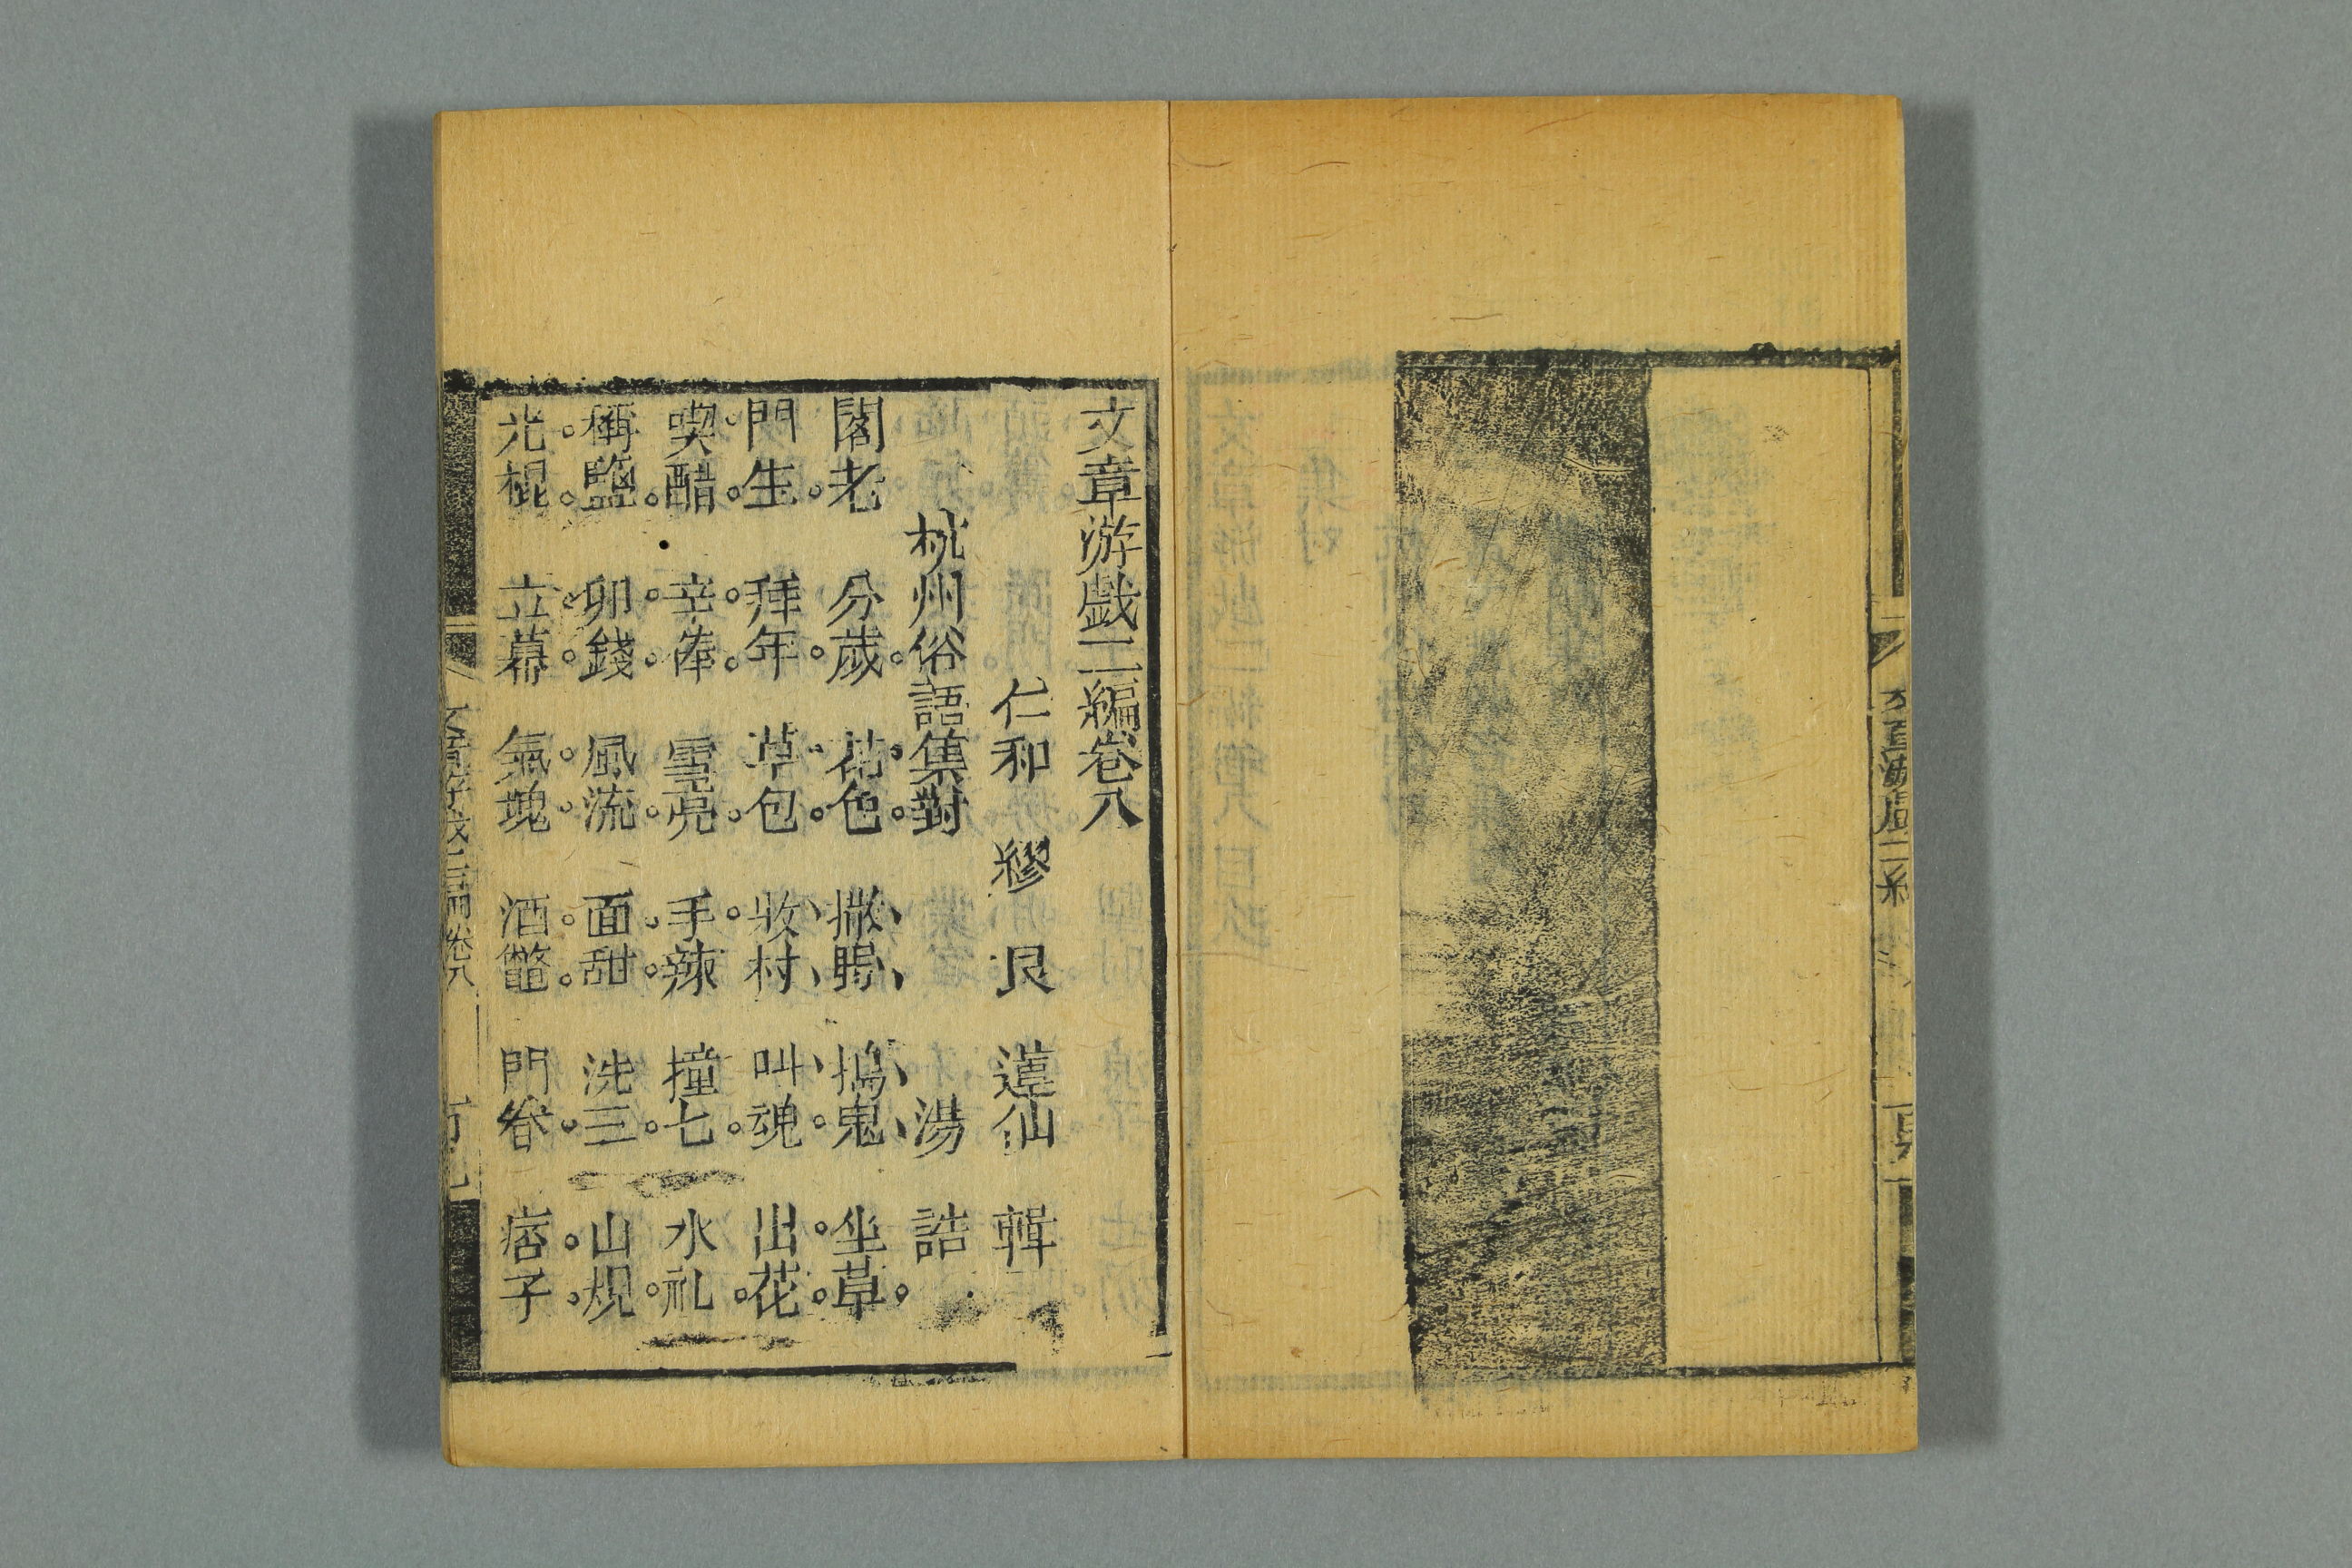 文章游戲二編卷八
仁和 繆 艮 蓮仙 輯
杭州俗語集對 湯 誥
閣老 分歲 花色 撒𦡱 搗鬼 坐草
門生 拜年 草包 收村 叫魂 出花
喫醋 辛俸 雪亮 手辣 撞七 水礼
稱鹽 卯錢 風流 面甜 洗三 山規
光棍 立幕 氣塊 酒鼈 門眷 痞子
文章游戲二編 卷八